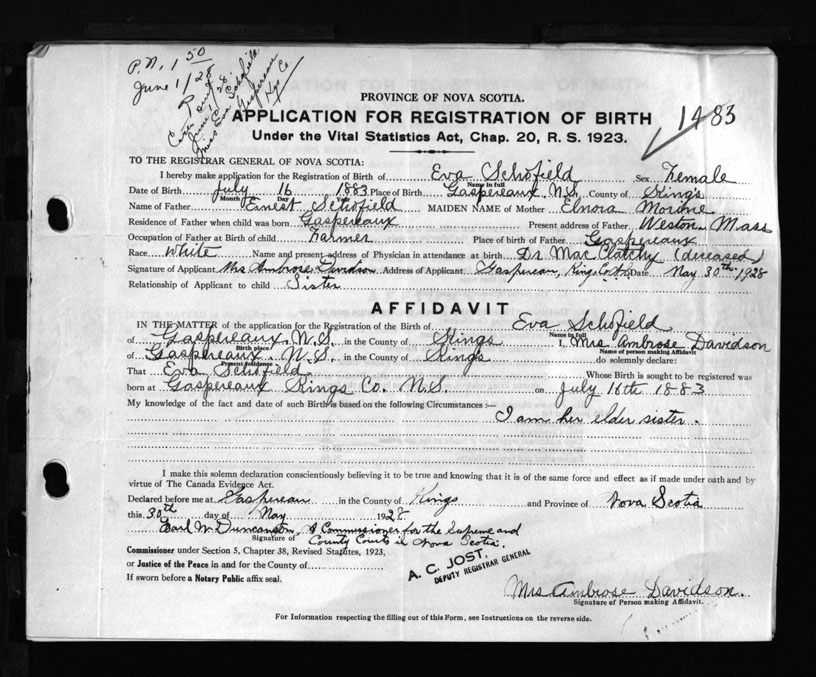 P.N. 1 50
June 1/28
June 1/28.
Miss Eva Schofield
Gaspereau
Kgs Co
1483
PROVINCE OF NOVA SCOTIA.
APPLICATION FOR REGISTRATION OF BIRTH
Under the Vital Statistics Act, Chap. 20, R. S. 1923.
TO THE REGISTRAR GENERAL OF NOVA SCOTIA:
I hereby make application for the Registration of Birth of Eva Schofield Sex Female
Name in full
Date of Birth July 16 1883 Place of Birth Gaspereaux N.S. County of Kings
Month Day
Name of Father Ernest Schofield MAIDEN NAME of Mother Elnora
Residence of Father when child was born Gaspereaux Present address of Father Weston Mass
Occupation of Father at Birth of child Farmer Place of birth of Father Gaspereaux
Race White Name and present address of Physician in attendance at birth Dr MacClatchy (deceased)
Signature of Applicant Mrs Ambrose Davidson Address of Applicant Gaspereau, Kings Co N.S. Date May 30th 1928
Relationship of Applicant to child Sister
AFFIDAVIT
IN THE MATTER of the application for the Registration of the Birth of Eva Schofield
Name in full
of Gaspereaux N.S. in the County of Kings I, Mrs Ambrose Davidson
Birth place Name of person making Affidavit
of Gaspereaux N.S. in the County of Kings do solemnly declare:
Present residence
That Eva Schofield Whose Birth is sought to be registered was
born at Gaspereaux Kings Co. N.S. on July 16th 1883
My knowledge of the fact and date of such Birth is based on the following Circumstances :—
I am her elder sister.
I make this solemn declaration conscientiously believing it to be true and knowing that it is of the same force and effect as if made under oath and by
virtue of The Canada Evidence Act.
Declared before me at Gaspereau in the County of Kings and Province of Nova Scotia
this 30th day of May 1928
Earl W. Duncanson, A Commissioner for the Supreme and
Signature of County Courts in Nova Scotia.
Commissioner under Section 5, Chapter 38, Revised Statutes, 1923,
or Justice of the Peace in and for the County of
If sworn before a Notary Public affix seal.
A. C. JOST,
DEPUTY REGISTRAR GENERAL
Mrs Ambrose Davidson.
Signature of Person making Affidavit.
For Information respecting the filling out of this Form, see Instructions on the reverse side.